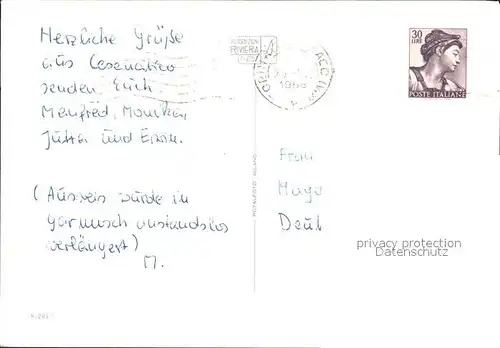 Herzliche Grüße
aus Cesenatico
senden Euch
Manfred, Monika,
Jutta und Erwin.
(Ausweis wurde in
Garmisch anstandslos
verlängert)
M.
RIVIERA
30
LIRE
POSTE ITALIANE
Frau
Deut
privacy protection
Datenschutz